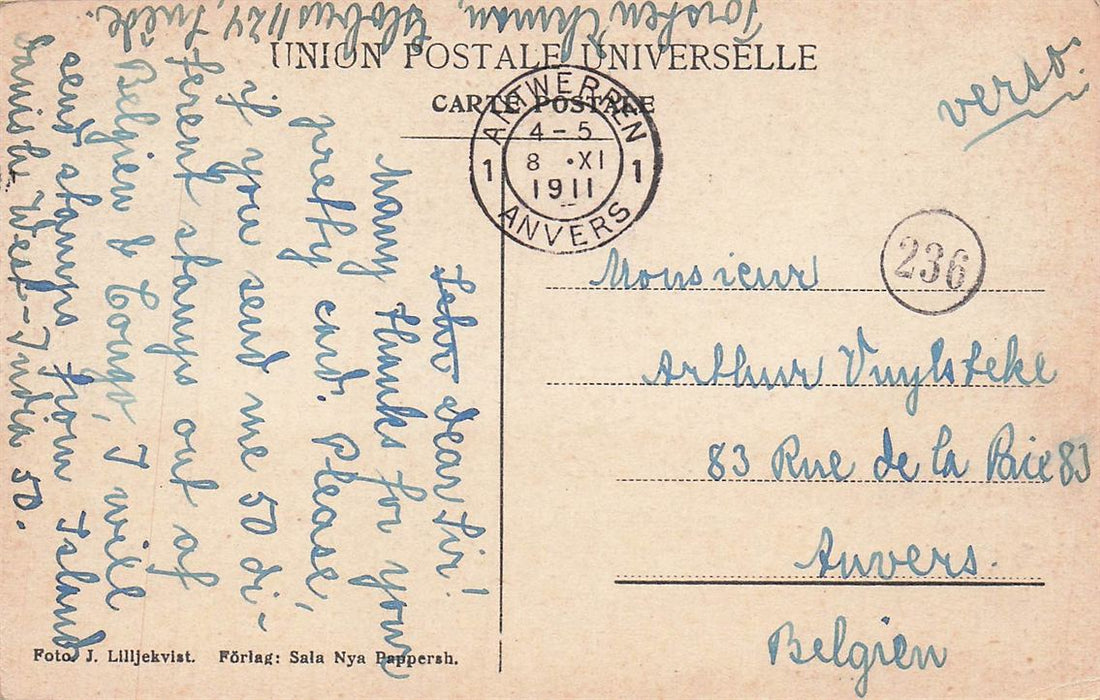 UNION POSTALE UNIVERSELLE
CARTE POSTALE
ANTWERPEN
1 4-5 1
8 ·XI
1911
ANVERS
verso.
236
Monsieur
Arthur Vuylsteke
83 Rue de la Paix 83
Anvers.
Belgien
Dear Sir!
Many thanks for your
pretty card. Please,
if you send me 50 di-
ferent stamps out of
Belgien & Congo, I will
send stamps from Island
Danish West-India 50.
Torsten Ehman, 1124, Suède.
Foto. J. Lilljekvist. Förlag: Sala Nya Pappersh.